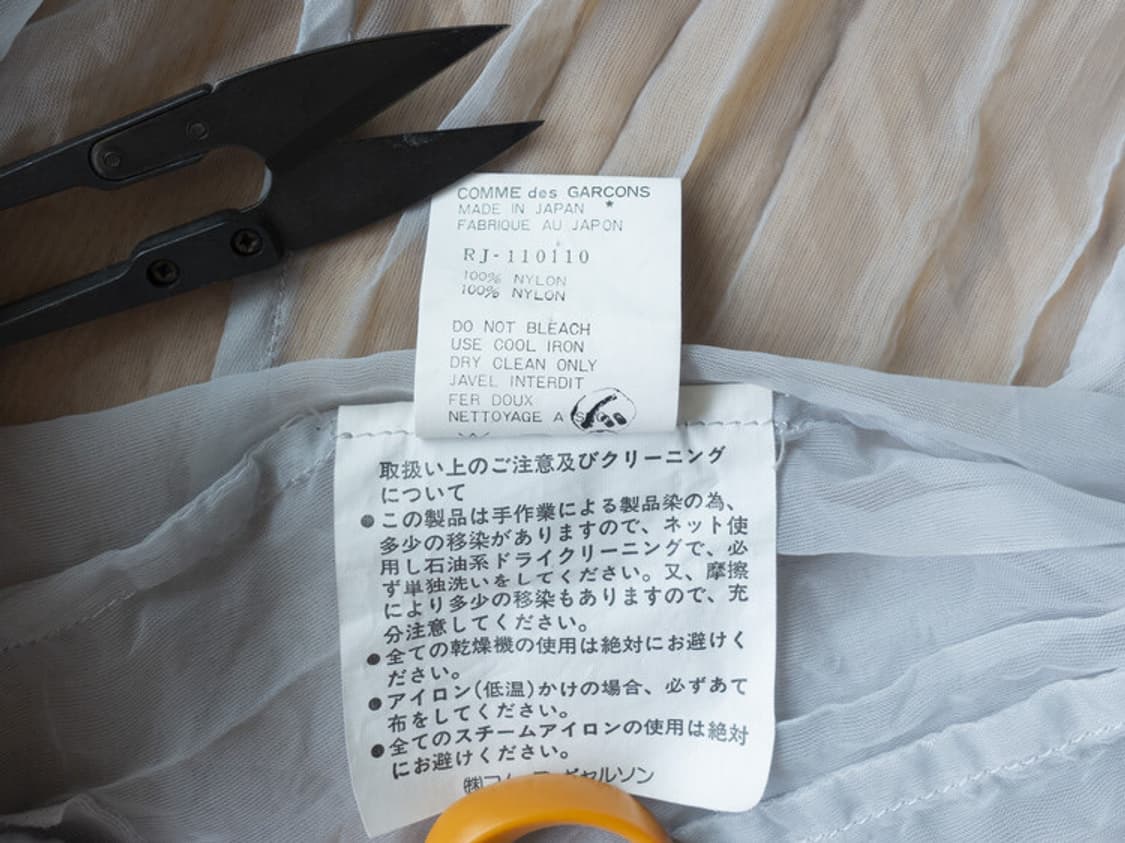 COMME des GARCONS
MADE IN JAPAN *
FABRIQUE AU JAPON
RJ-110110
100% NYLON
100% NYLON
DO NOT BLEACH
USE COOL IRON
DRY CLEAN ONLY
JAVEL INTERDIT
FER DOUX
NETTOYAGE A
取扱い上のご注意及びクリーニング
について
●この製品は手作業による製品染の為、
多少の移染がありますので、ネット使
用し石油系ドライクリーニングで、必
ず単独洗いをしてください。又、摩擦
により多少の移染もありますので、充
分注意してください。
●全ての乾燥機の使用は絶対にお避けく
ださい。
●アイロン(低温)かけの場合、必ずあて
布をしてください。
●全てのスチームアイロンの使用は絶対
にお避けください。
㈱コム
ギャルソン